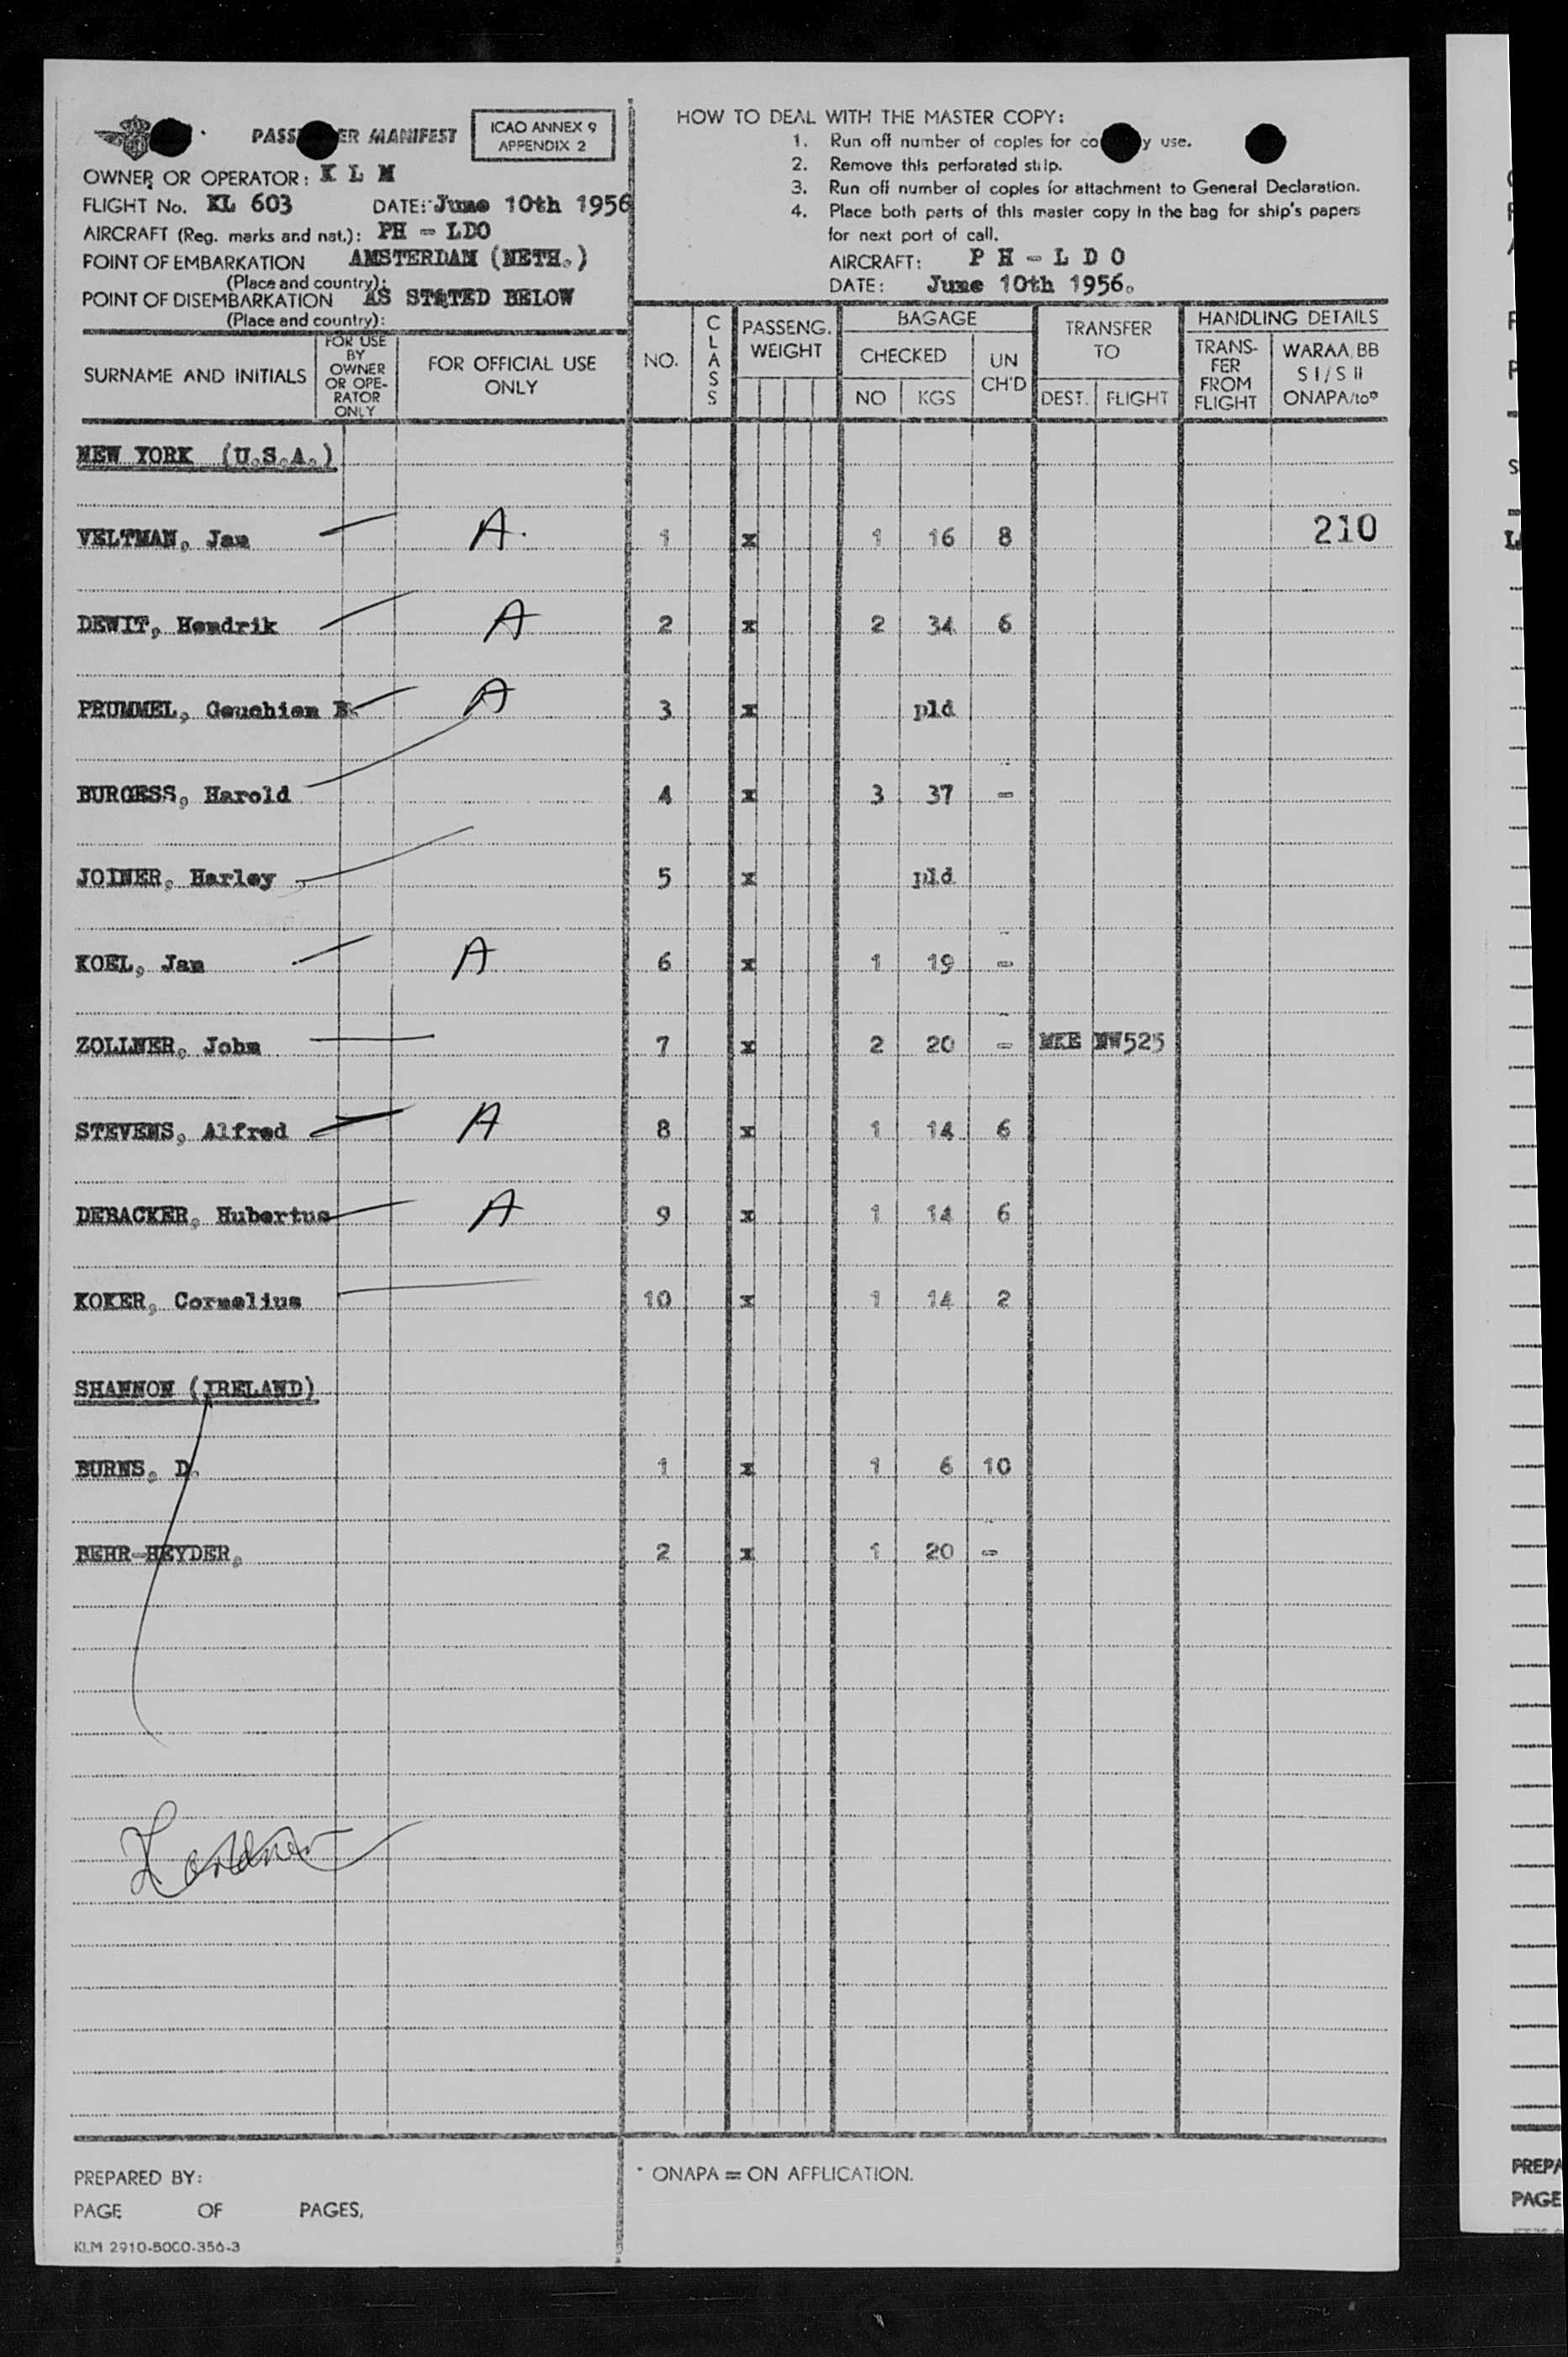 PASS ER MANIFEST
ICAO ANNEX 9
APPENDIX 2
OWNER OR OPERATOR: K L M
FLIGHT No. KL 603 DATE: June 10th 1956
AIRCRAFT (Reg. marks and nat.): PH - LDO
POINT OF EMBARKATION AMSTERDAM (NETH.)
(Place and country):
POINT OF DISEMBARKATION AS STATED BELOW
(Place and country):
HOW TO DEAL WITH THE MASTER COPY:
1. Run off number of copies for co y use.
2. Remove this perforated strip.
3. Run off number of copies for attachment to General Declaration.
4. Place both parts of this master copy in the bag for ship's papers
for next port of call.
AIRCRAFT: P H - L D O
DATE: June 10th 1956.
SURNAME AND INITIALS
FOR USE
BY
OWNER
OR OPE-
RATOR
ONLY
FOR OFFICIAL USE
ONLY
NO.
CLASS
PASSENG.
WEIGHT
BAGAGE
CHECKED
NO KGS
UN
CH'D
TRANSFER
TO
DEST. FLIGHT
HANDLING DETAILS
TRANS-
FER
FROM
FLIGHT
WARAA, BB
S I / S II
ONAPA/to*
NEW YORK (U.S.A.)
VELTMAN, Jan A. 1 x 1 16 8 210
DEWIT, Hendrik A 2 x 2 34 6
PRUMMEL, Geuchien E. A 3 x pld
BURGESS, Harold 4 x 3 37 -
JOINER, Harley 5 x pld
KOEL, Jan A 6 x 1 19 -
ZOLLNER, John 7 x 2 20 - MKE NW525
STEVENS, Alfred A 8 x 1 14 6
DEBACKER, Hubertus A 9 x 1 14 6
KOKER, Cornelius 10 x 1 14 2
SHANNON (IRELAND)
BURNS, D. 1 x 1 6 10
BEHR-HEYDER, 2 x 1 20 -
PREPARED BY:
PAGE OF PAGES,
KLM 2910-5000-356-3
* ONAPA = ON APPLICATION.
PREPA
PAGE